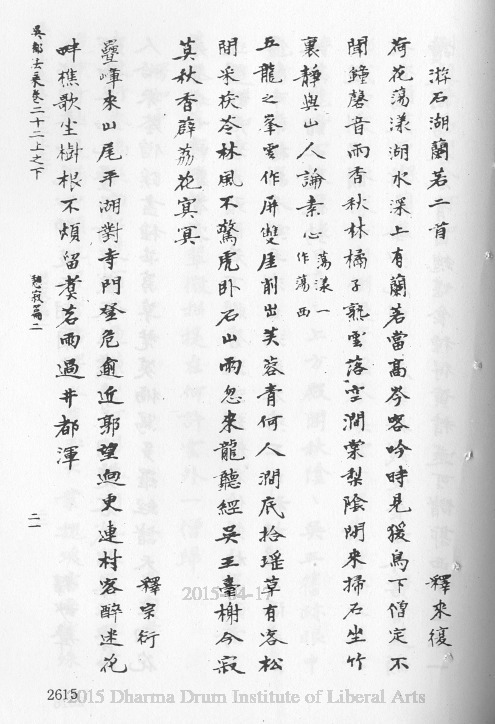 游石湖蘭若二首 釋來復
荷花蕩漾湖水深上有蘭若當高岑客吟時見猨鳥下僧定不
聞鐘磬音雨香秋林橘子熟雲落空澗棠梨陰閒來掃石坐竹
裏靜與山人論素心 蕩漾一
作蕩西
五龍之峯雲作屏雙崖削出芙蓉青何人澗底拾瑤草有客松
間采茯苓林風不驚虎臥石山雨忽來龍聽經吳王臺榭今寂
莫秋香薜荔花冥冥
釋宗衍
疊嶂來山尾平湖對寺門登危逾近郭望迥更連村客醉迷花
畔樵歌坐樹根不煩留煑茗雨過井都渾
吳都法乘卷二十二上之下 憩寂篇二 二一
2615
2015-04-17
2015 Dharma Drum Institute of Liberal Arts